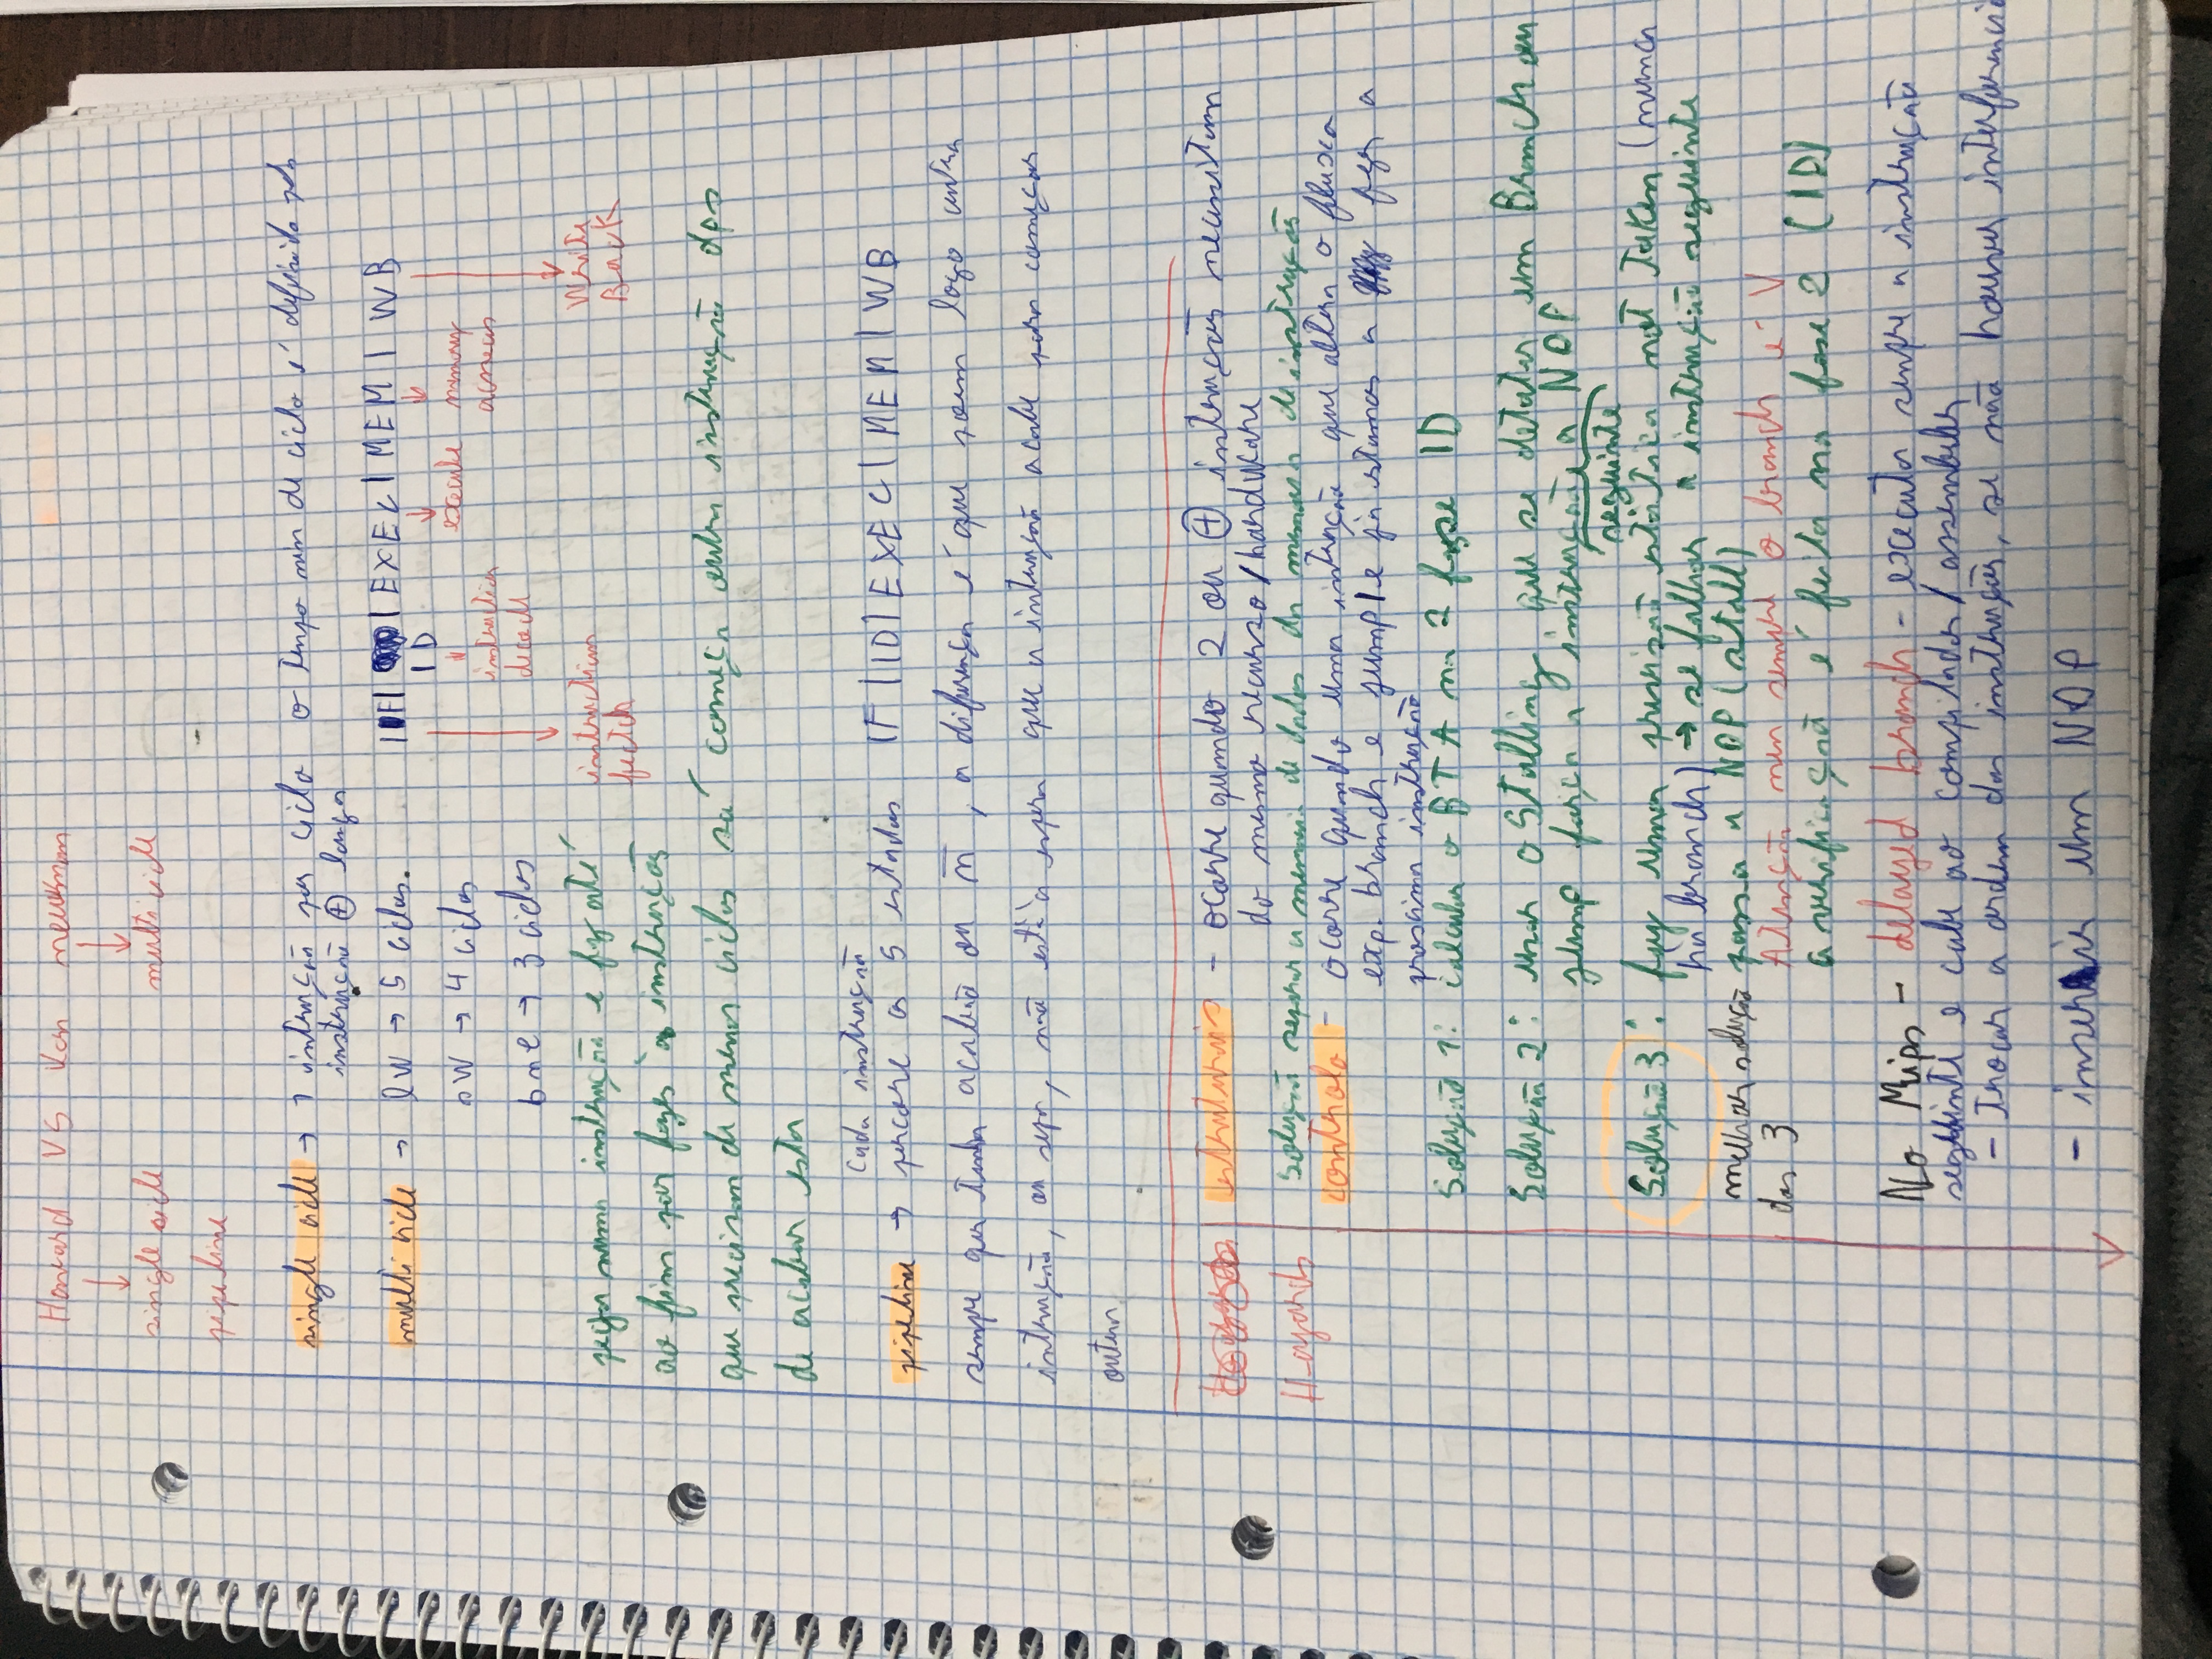 Harvard VS Von newman
single cicle multi cicle
pipeline
single cicle → 1 intrução por ciclo o tempo min de ciclo é definido pela
instrução + longa
multi cicle → lw → 5 ciclos. | IF | | EXEC | MEM | WB
ID
sw → 4 ciclos execute memory
instruction acsecs
decode
bne → 3 ciclos
pega numa instrução e faz até instruction Write
fectch Back
ao fim por fazes às instruções
que precisam de menos ciclos só começa outra instrução dps
de acabar esta
cada instrução
pipeline → percore os 5 estados IF | ID | EXEC | MEM | WB
sempre quer tenha acabão ou n̄, a diferença é que poem logo outra
intrução, ou seja, não está à espera que a intrução acabe para começar
outra
estruturais - ocorre quando 2 ou + intruções necessitam
do mesmo recurso/hardware
Hazards Solução separar a memoria de dados da memoria de instruções
controlo - ocorre quando uma intrução que altera o fluxo
exp. branch e jump/e já estamos a fazer a
proxima instrução
Solução 1: calcular o BTA na 2 fase ID
Solução 2: usar o Stalling que se detatar um Branch ou
jump força a instrução a NOP
seguinte
Solução 3: faz uma previsão estática not taken (nunca
ha branch) → se falhar a instrução seguinte
melhor solução passa a NOP (stall)
das 3 Atenção nem sempre o branch é V
a verificação é feita na fase 2 (ID)
No Mips - delayed branch - executa sempre a instrução
seguinte e cabe ao compilador/assembler
- trocar a ordem das instruções, se não houver interferencia
- inserir um NOP